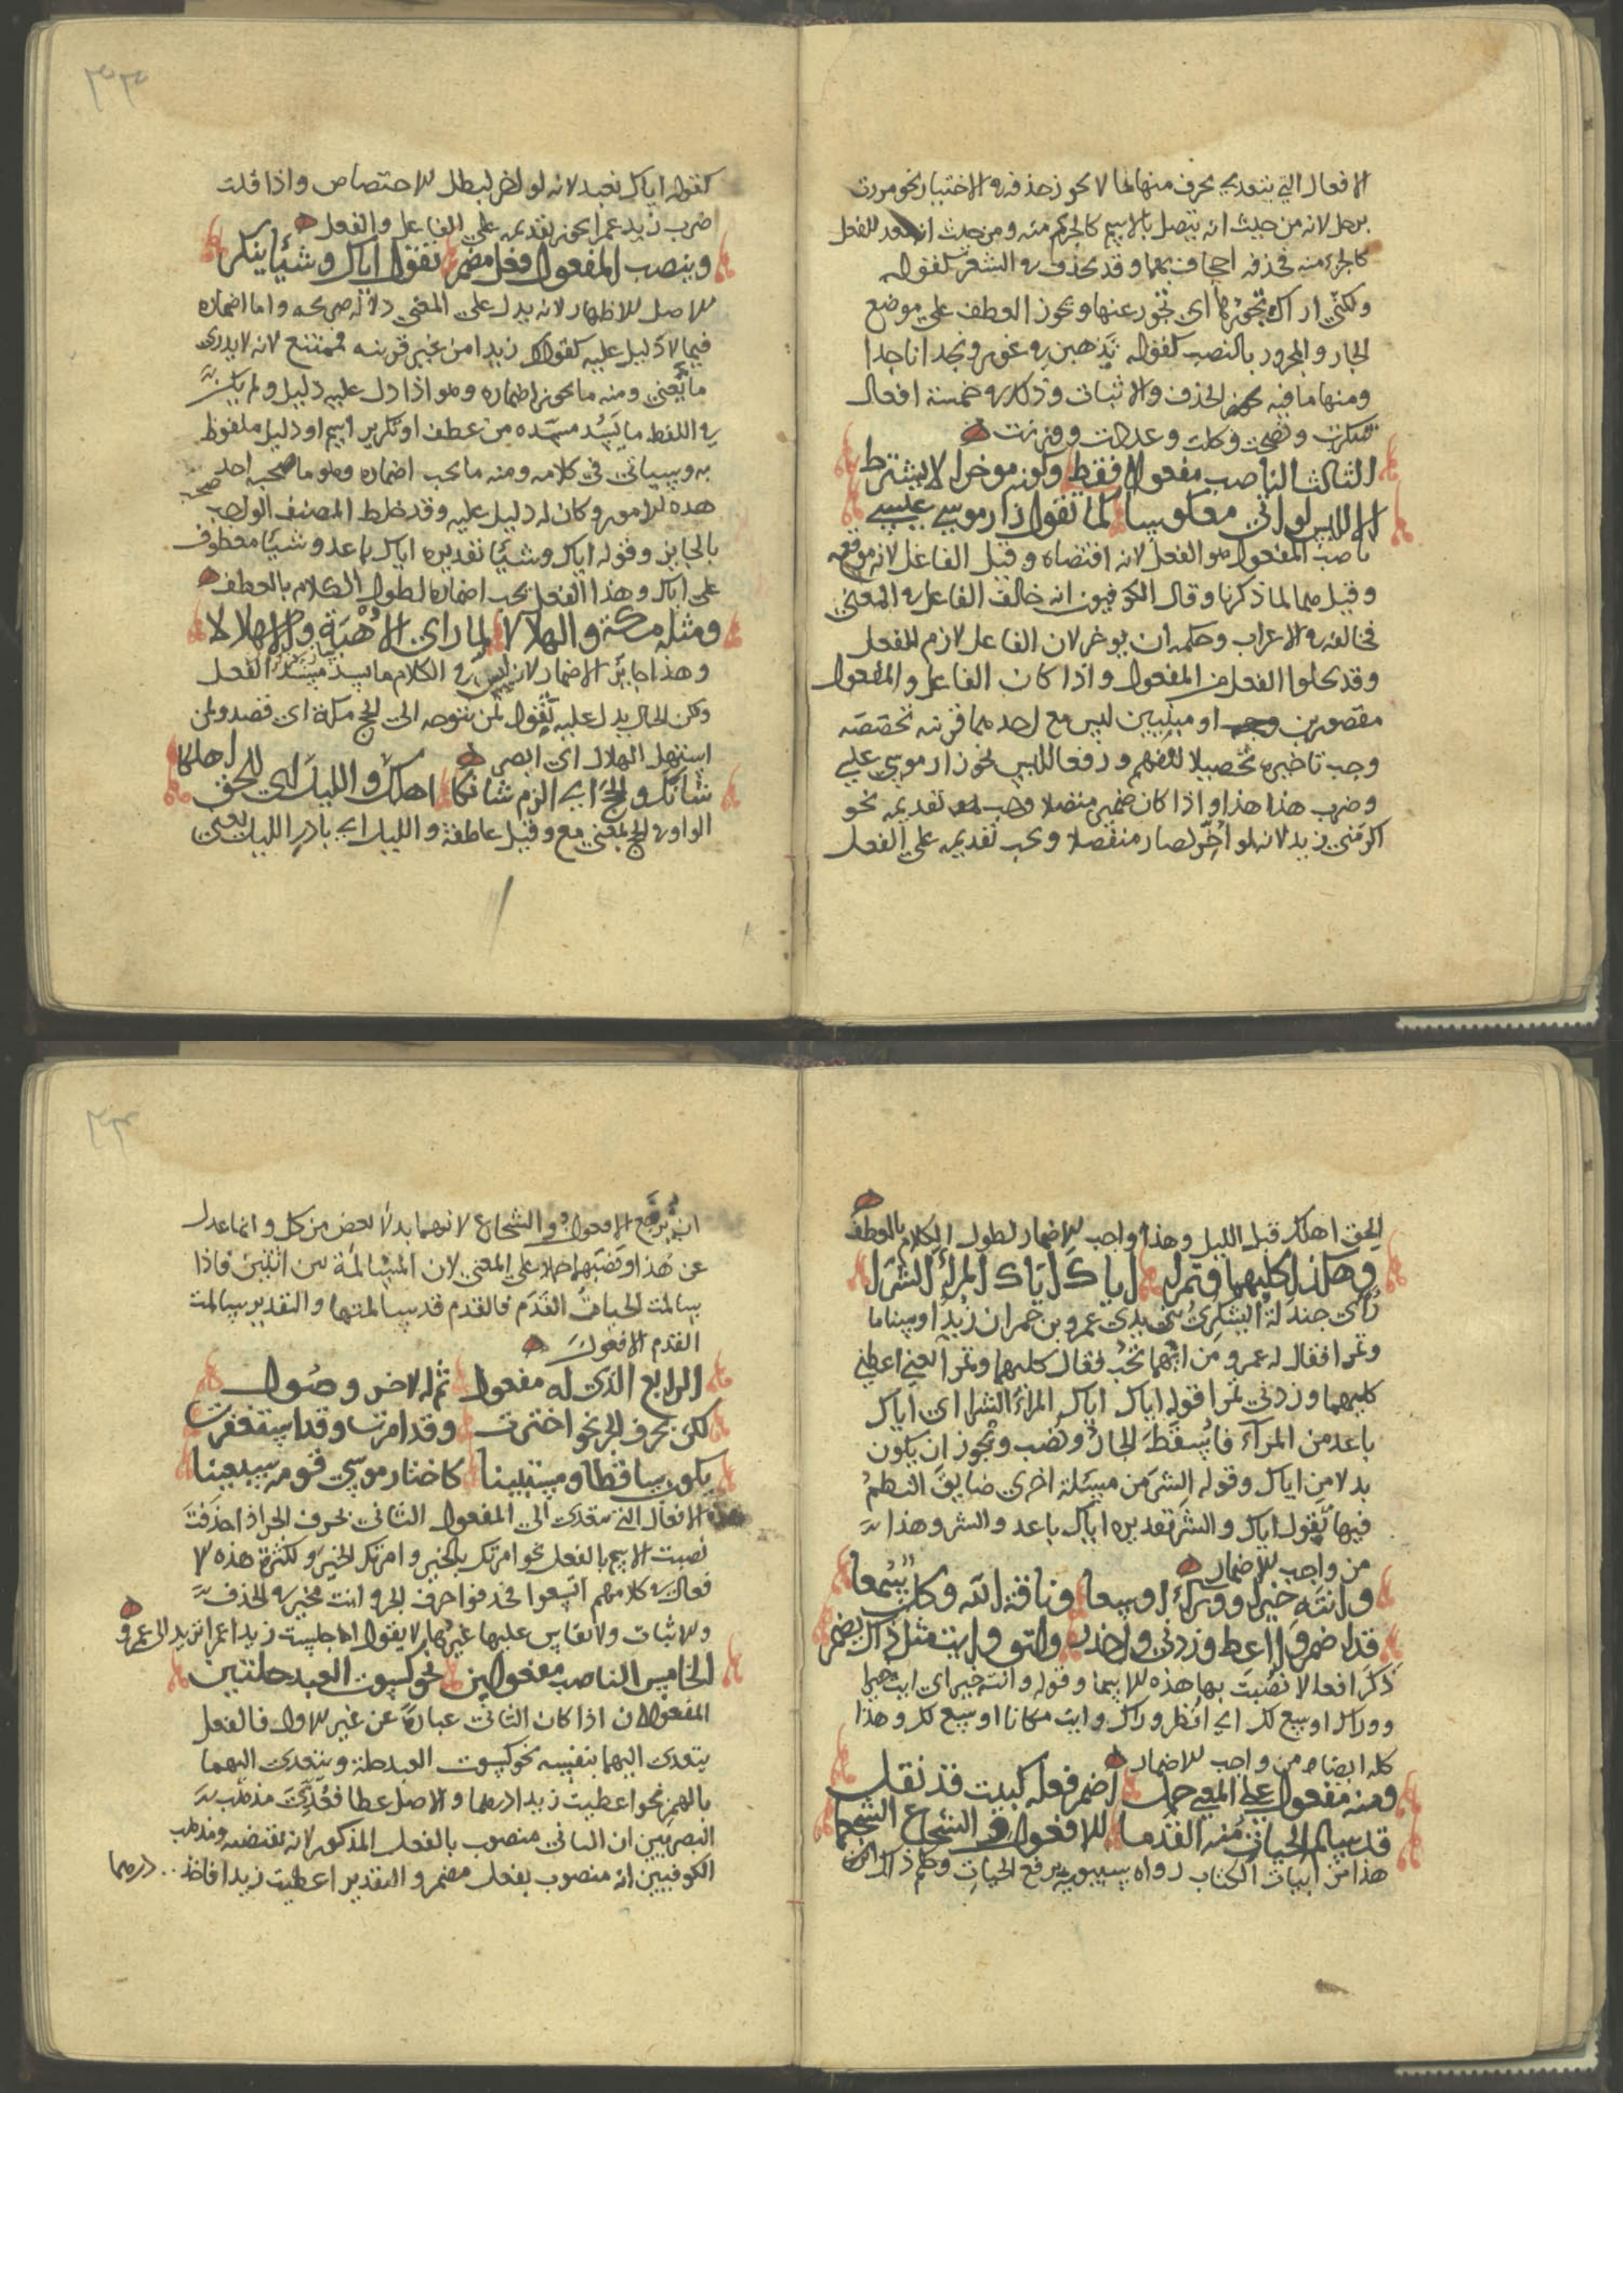 الافعال التي يتعدى بحرف منها ما لا يجوز حذفه في الاختيار نحو مررت
برجل لانه من حيث انه يتصل بالاسم كالجزء منه ومن حيث انه للفعل
كالجزء منه فحذفه اجحاف بهما وقد يحذف في الشعر كقوله
اي تجور عنها ويجوز العطف على موضع
الجار والمجرور بالنصب كقوله يذهبن في غور ونجدا
ومنها ما فيه يجوز الحذف والاثبات وذلك في خمسة افعال
شكرت ونصحت وكلت وعددت ووزنت
الثالث الناصب مفعولا فقط وكونه موخرا لا يشترط
الا للبس لو اتى معكوسا كما تقول زار موسى عيسى
ناصب المفعول هو الفعل لانه اقتضاه وقيل الفاعل لانه موقعه
وقيل هما لما ذكرنا وقال الكوفيون انه خالف الفاعل في المعنى
فخالفه في الاعراب وحكمه ان يوخر لان الفاعل لازم للفعل
وقد يخلوا الفعل من المفعول واذا كان الفاعل والمفعول
مقصورين او مبنيين ليس مع احدهما قرينه تخصصه
وجب تاخيره تحصيلا للفهم ودفعا للبس نحو زار موسى
وضرب هذا هذا واذا كان ضمير متصلا وجب تقديمه نحو
اكرمني زيد لانه لو اخر لصار منفصلا ويجب تقديمه على الفعل
كقوله اياك نعبد لانه لو اخر لبطل الاختصاص واذا قلت
ضرب زيد عمرا يجوز تقديمه على الفاعل والفعل
وينصب المفعول فعل مضمر تقول اياك وشيئا ينكر
الاصل الاظهار لانه يدل على المعنى دلالة صريحه واما اضماره
فيما لا دليل عليه كقولك زيدا من غير قرينه فممتنع لانه لا يدرى
ما يعنى ومنه ما يجوز اضماره وهو اذا دل عليه دليل ولم يكن
في اللفظ ما يسد مسده من عطف او تكرير اسم او دليل ملفوظ
به وسياتي في كلامه ومنه ما يجب اضماره وهو ما صحبه احد
هذه الامور وكان له دليل عليه وقد خلط المصنف الواجب
بالجايز وقوله اياك وشيئا تقديره اياك باعد وشيئا معطوف
على اياك وهذا الفعل يجب اضماره لطول الكلام بالعطف
ومثله مكة والهلالا لما راى الاهبة والاهلالا
وهذا جايز الاضمار لانه ليس في الكلام ما يسد مسد الفعل
ولكن الحال يدل عليه تقول لمن يتوجه الى الحج مكة اي قصد ولمن
استهل الهلال اي ابصر
شانك والحج اي الزم شانكا اهلك والليل اي للحق اهلكا
الواو في الحج بمعنى مع وقيل عاطفة والليل اي بادر الليل يعني
الحق اهلك قبل الليل وهذا واجب الاضمار لطول الكلام بالعطف
وهكذا كليهما وتمرا اياك اياك المراء الشرا
عمرو بن حمران زبدا وسناما
وتمرا فقال له عمرو من ايهما تحب فقال كليهما وتمرا يعني اعطني
كليهما وزدني تمرا قوله اياك اياك المراء الشرا اي اياك
باعد من المراء فاسقط الجار ونصب ويجوز ان يكون
بدلا من اياك وقوله الشر من مسئلة اخرى ضايق النظم
فيها تقول اياك والشر تقديره اياك باعد والشر وهذا
من واجب الاضمار
وانته خيرا ووراك اوسعا وناقة الله وكل سمعا
قد اضمروا اعط وزدني واحذر والتو وايت مثل ذاك يضمر
ذكر افعالا نصبت بها هذه الاسما وقوله وانته خيرا اي ايت خيرا
ووراك اوسع لك اي انظر وراك وايت مكانا اوسع لك وهذا
كله ايضا من واجب الاضمار
ومنه مفعول على المعنى حمل اضمر فعله كبيت قد نقل
قد سالم الحيات منه القدما الافعوان والشجاع الشجعما
هذا من ابيات الكتاب رواه سيبويه برفع الحيات
ان يرفع الافعوان والشجاع لانهما بدل بعض من كل وانما عدل
عن هذا ونصبهما حملا على المعنى لان المسالمة من اثنين فاذا
سالمت الحيات القدم فالقدم قد سالمتها والتقدير سالمت
القدم الافعوان
الرابع الذي له مفعول ثم له لاخر وصول
لكن بحرف الجر نحو اخترت وقد امرت وقد استغفرت
يكون ساقطا ومستبينا كاختار موسى قومه سبعينا
هذه الافعال التي تتعدى الى المفعول الثاني بحرف الجر اذا حذفت
نصبت الاسم بالفعل نحو امرتك بالخير وامرتك الخير ولكثرة هذه
في كلامهم اتسعوا فحذفوا حرف الجر وانت مخير في الحذف
والاثبات ولا يقاس عليها غيرها لا يقول جلست زيدا عمرا تريد الى عمرو
الخامس الناصب مفعولين نحو كسوت العبد حلتين
المفعولان اذا كان الثاني عبارة عن غير الاول فالفعل
يتعدى اليهما بنفسه نحو كسوت العبد حلة ويتعدى اليهما
بالهمز نحو اعطيت زيدا درهما والاصل عطا فعدي مذهب
البصريين ان الثاني منصوب بالفعل المذكور لانه يقتضيه ومذهب
الكوفيين انه منصوب بفعل مضمر والتقدير اعطيت زيدا فاخذ درهما